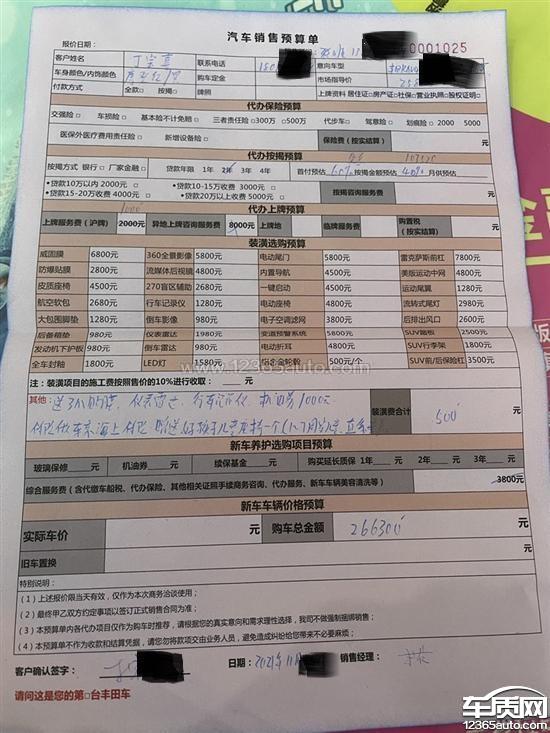 汽车销售预算单
报价日期： 0001025
客户姓名 联系电话 意向车型
车身颜色/内饰颜色 购车定金 市场指导价
付款方式 全款□ 按揭□ 牌照 上牌资料 居住证□ 房产证□ 社保□ 营业执照□ 股权证明□
代办保险预算
交强险□ 车损险□ 基本险不计免赔□ 三者责任险□300万 □500万 代步车□ 驾意险□ 划痕险□ 2000 5000
医保外医疗费用责任险□ 新增设备险□ 保险费（按实结算） 元
代办按揭预算
按揭方式 银行□ 厂家金融□ 贷款年限 1年 2年 3年 4年 首付预估 60% 按揭金额预估 40% 月供预估
•贷款10万以内 2000元□ •贷款10-15万收费 3000元□
•贷款15-20万收费 4000元□ •贷款20万以上收费 5000□ 按揭咨询服务费 元
代办上牌预算
1000
上牌服务费（沪牌） 2000元 异地上牌咨询服务费 8000元 上牌地 临牌服务费 购置税（按实结算） 元
装潢选购预算
威固膜 6800元 360全景影像 5800元 电动尾门 5800元 雷克萨斯前杠 7800元
防爆贴膜 2800元 流媒体后视镜 4800元 内置导航 4500元 美版运动中网 4800元
皮质座椅 4500元 270盲区辅助 2680元 一键启动 4500元 运动尾翼 1280元
航空软包 2680元 行车记录仪 1280元 电动座椅 4800元 流转式尾灯 2980元
大包围脚垫 1280元 倒车影像 980元 电子空调滤网 3800元 后排出风口 2600元
后备箱垫 980元 仪表雷达 1980元 变道预警系统 5800元 SUV踏板 2500元
发动机下护板 980元 倒车雷达 980元 电动折耳 4800元 SUV行李架 1800元
全车封釉 1800元 LED灯 1580元 铝合金轮毂 500元/个 SUV前/后保险杠 3500元
www.12365auto.com
注：装潢项目的施工费按照售价的10%进行收取： 元
其他： 装潢费合计 500 元
新车养护选购项目预算
玻璃保修 元 机油券 元 续保基金 元 购买延长质保 1年 元 2年 元 3年 元
综合服务费（含代缴车船税、代办保险、其他相关证照手续商务咨询、代办服务、新车车辆美容清洗等） 3800元
新车车辆价格预算
实际车价 元 购车总金额 266300 元
旧车置换 元
特别说明：
（1）上述报价限当天有效，仅作为本次商务洽谈使用；
（2）最终甲乙双方约定事项以签订正式销售合同为准；
（3）本预算单内各代办项目仅作为购车时推荐，请根据您的真实意向和需求理性选择，我司不做强制捆绑销售；
（4）本预算单不作为收款和结算凭据，请您勿将款项交由业务人员，避免造成纠纷给您带来不必要麻烦；
客户确认签字： 日期： 2021年11 销售经理：
请问这是您的第□台丰田车
车质网
12365auto.com